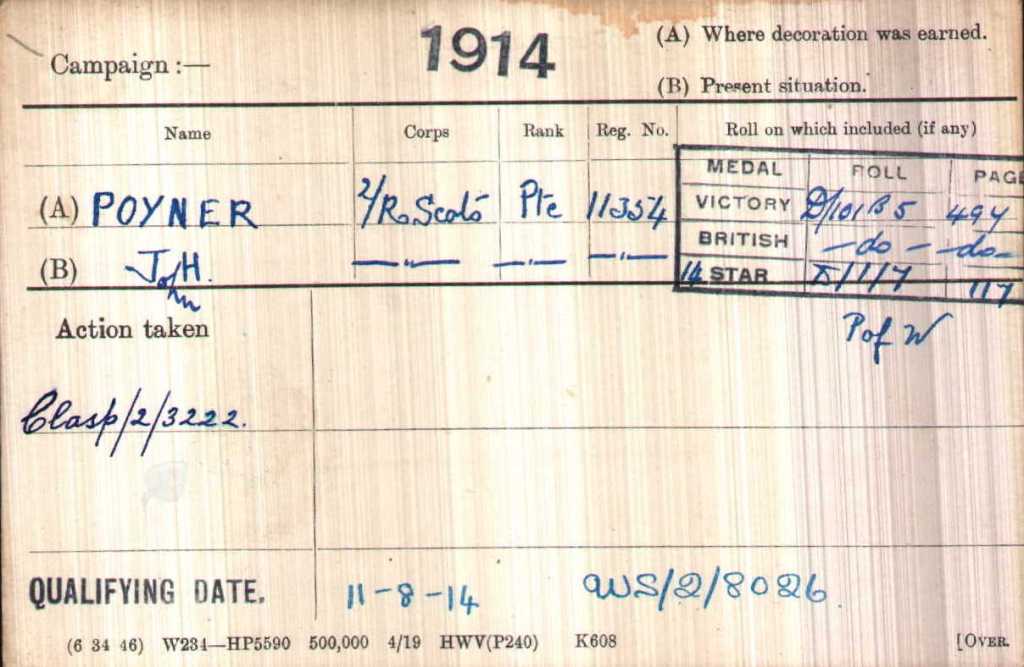 Campaign :— 1914 (A) Where decoration was earned.
(B) Present situation.
Name Corps Rank Reg. No. Roll on which included (if any)
MEDAL ROLL PAGE
(A) POYNER 2/R. Scots Pte 11354 VICTORY D/101 B 5 494
BRITISH —do— —do—
(B) J. H. —"— —"— —"— 14 STAR I/1/7 117
John
Action taken P of W
Clasp/2/3222.
QUALIFYING DATE. 11-8-14 WS/2/8026
(6 34 46) W234—HP5590 500,000 4/19 HWV(P240) K608 [OVER.